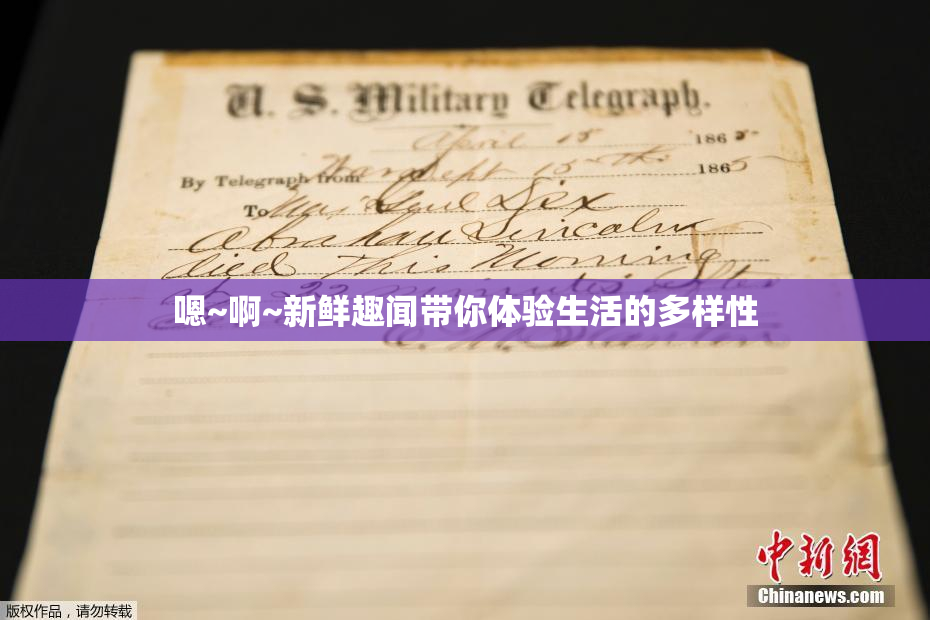 U. S. Military Telegraph.
April 15 1865
By Telegraph from War Dept 15th 1865
To Maj Genl Dix
Abraham Lincoln
died This Morning
at 22 minutes after
嗯~啊~新鲜趣闻带你体验生活的多样性
E. M. Stanton
中新網
Chinanews.com
版权作品，请勿转载